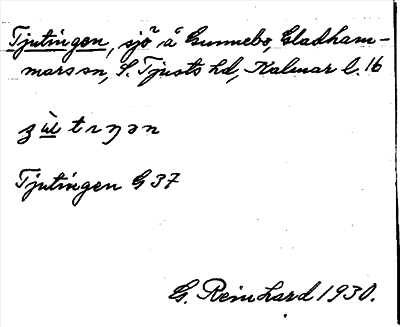 Tjutingen, sjö å Gunnebo, Gladham-
mars sn, S. Tjusts hd, Kalmar l. 16
Tjutingen G 37
G. Reinhard 1930.